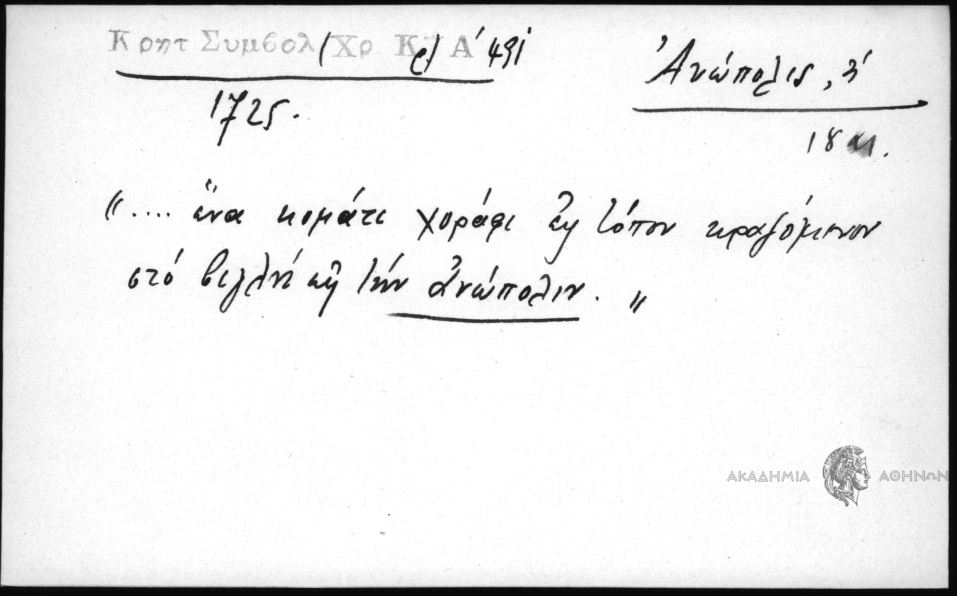 Κρητ Συμβολ (Χρ Κρ) Α' 491
Ἀνώπολις, ἡ
1725.
".... ἕνα κομάτι χοράφι εἰς τόπον κραζόμενον
στό βιγλί εἰς τήν ἀνώπολιν. "
ΑΚΑΔΗΜΙΑ ΑΘΗΝΩΝ